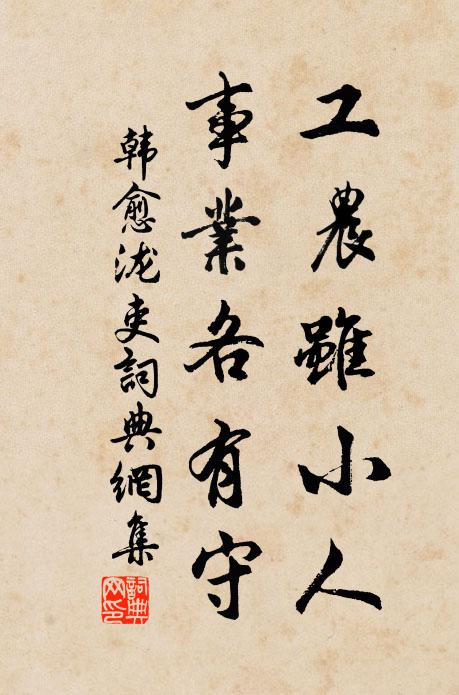 工農雖小人
事業各有守
韩愈泷吏詞典網集
詞典网印